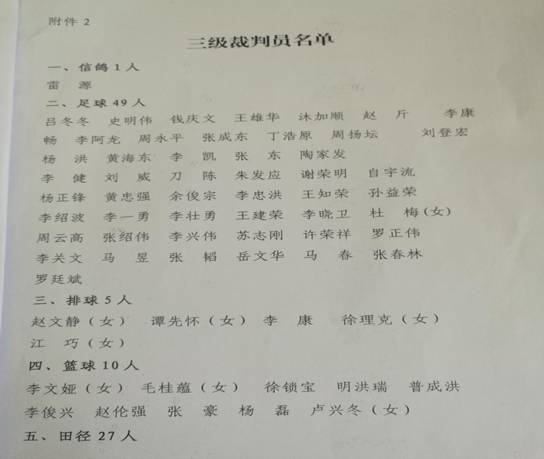 附件 2
三级裁判员名单
一、信鸽 1 人
雷 源
二、足球 49 人
吕冬冬 史明伟 钱庆文 王雄华 沐加顺 赵 斤 李康
畅 李阿龙 周永平 张成东 丁浩原 周扬坛 刘登宏
杨 洪 黄海东 李 凯 张 东 陶家发
李 健 刘 威 刀 陈 朱发应 谢荣明 自宇流
杨正锋 黄忠强 余俊宗 李忠洪 王知荣 孙益荣
李绍波 李一勇 李壮勇 王建荣 李晓卫 杜 梅(女)
周云高 张绍伟 李兴伟 苏志刚 许荣祥 罗正伟
李关文 马 昱 张 韬 岳文华 马 春 张春林
罗廷斌
三、排球 5 人
赵文静（女） 谭先怀（女） 李 康 徐理克（女）
江 巧（女）
四、篮球 10 人
李文娅（女） 毛桂蕴（女） 徐锁宝 明洪瑞 普成洪
李俊兴 赵伦强 张 豪 杨 磊 卢兴冬（女）
五、田径 27 人